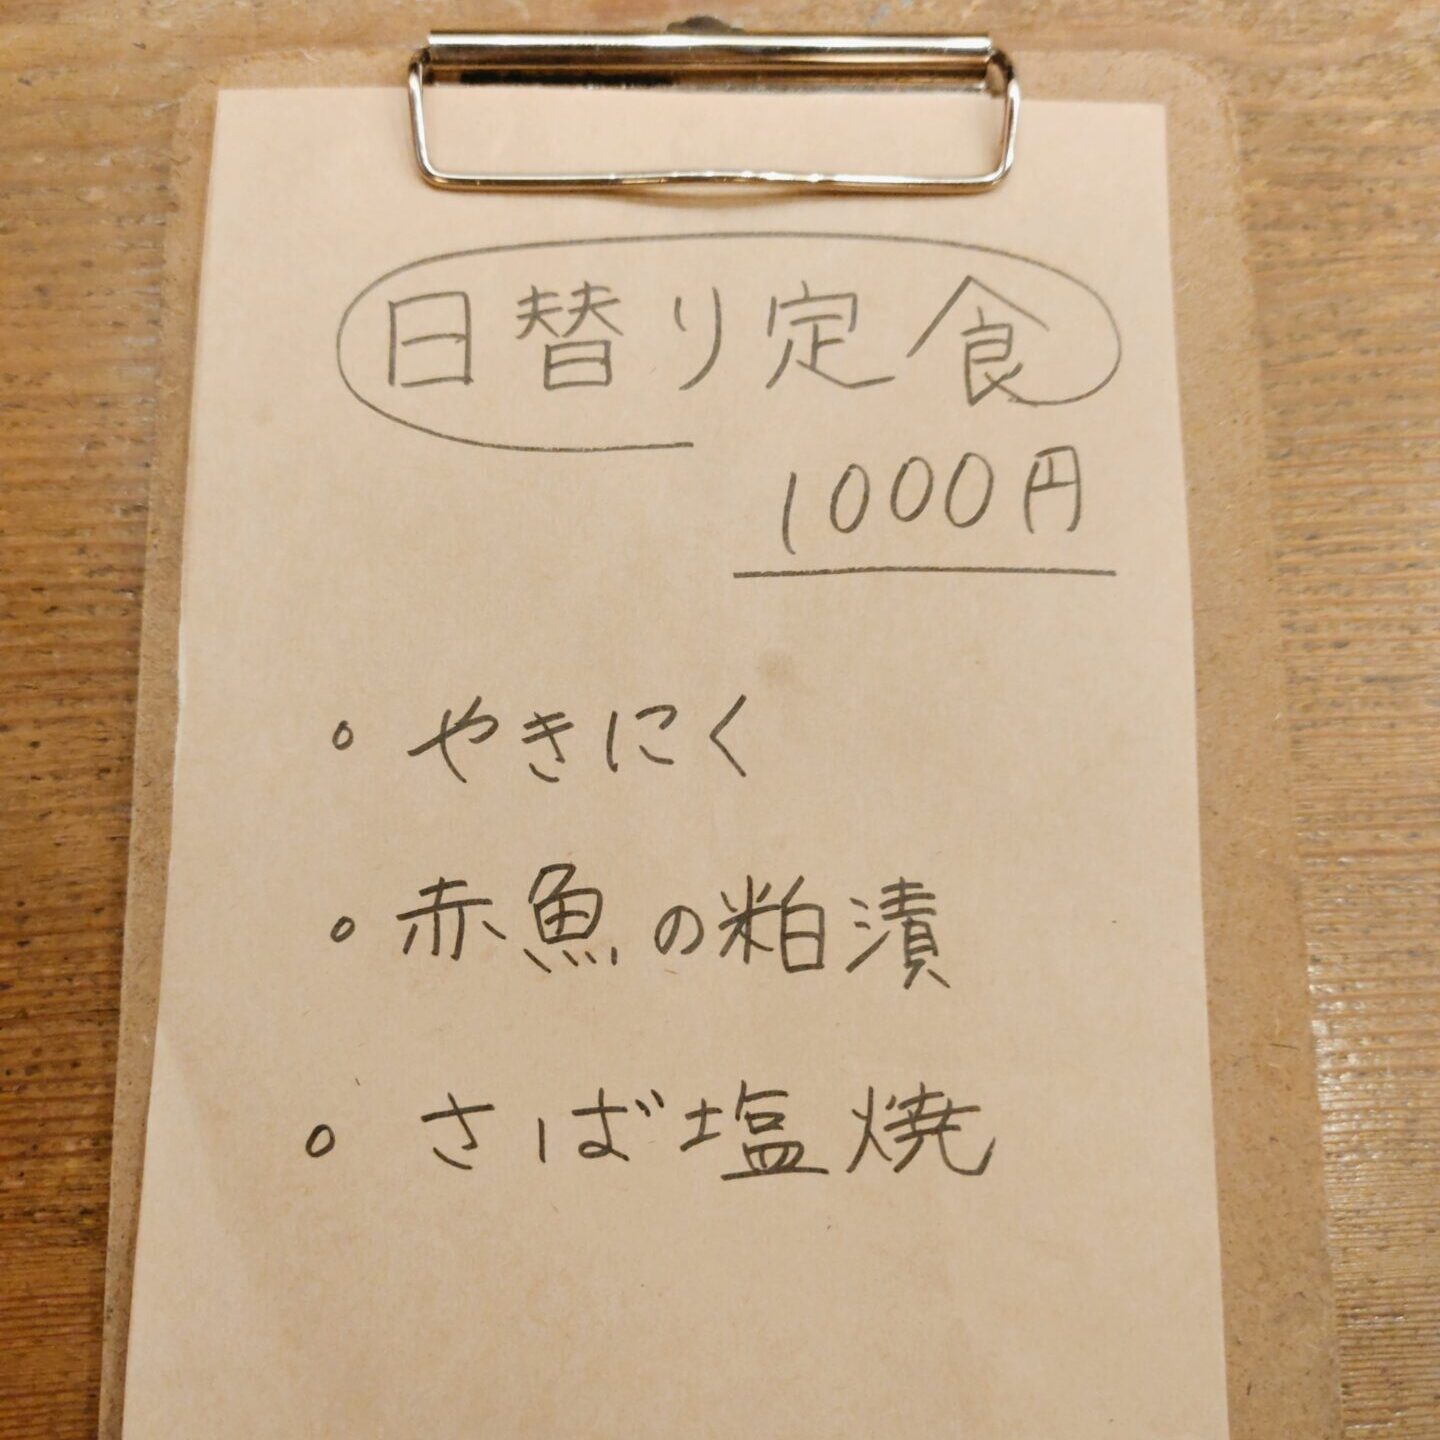 日替り定食
1000円
。やきにく
。赤魚の粕漬
。さば塩焼